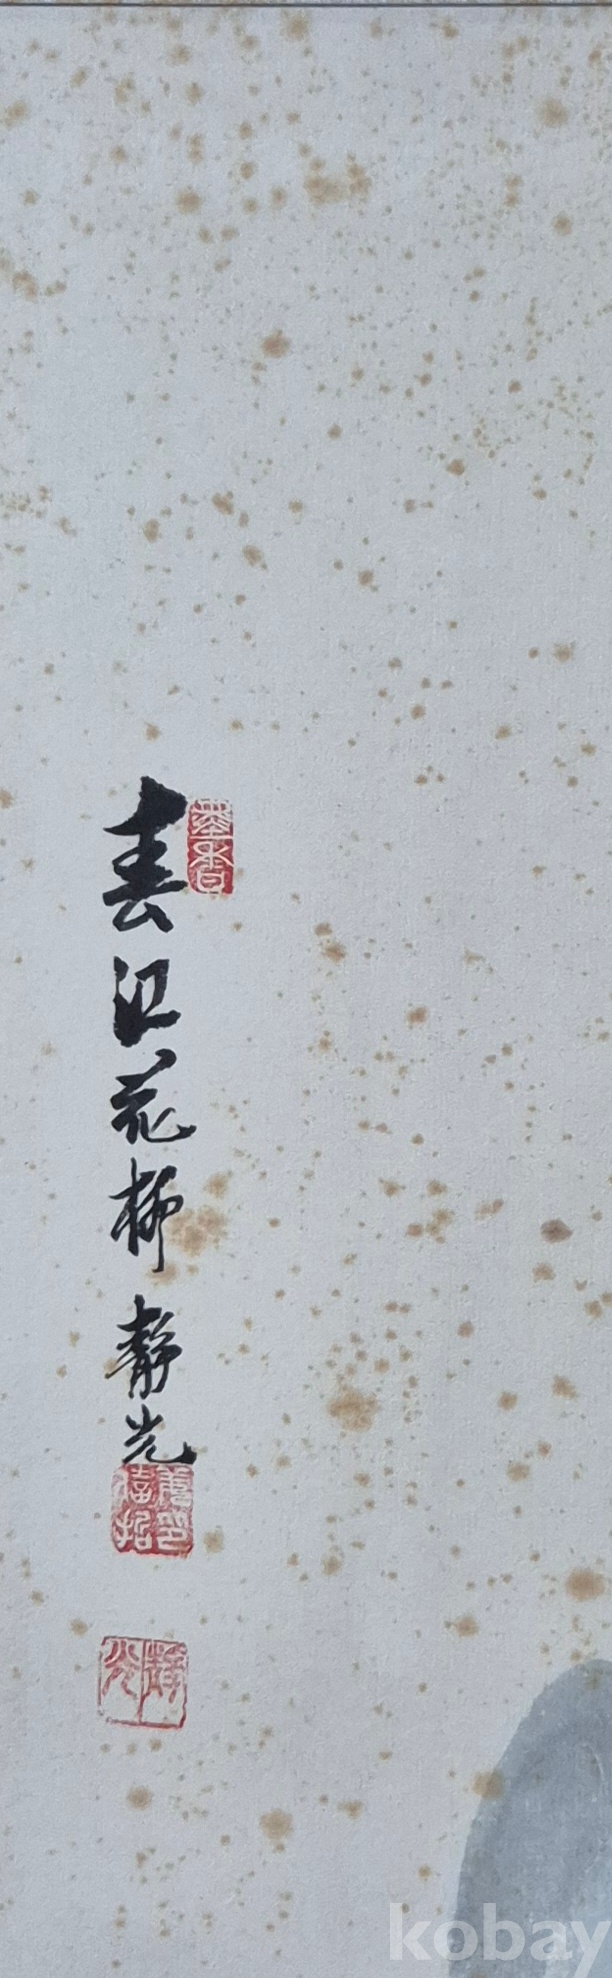 春江花柳 靜光
墨香
靜光
kobay